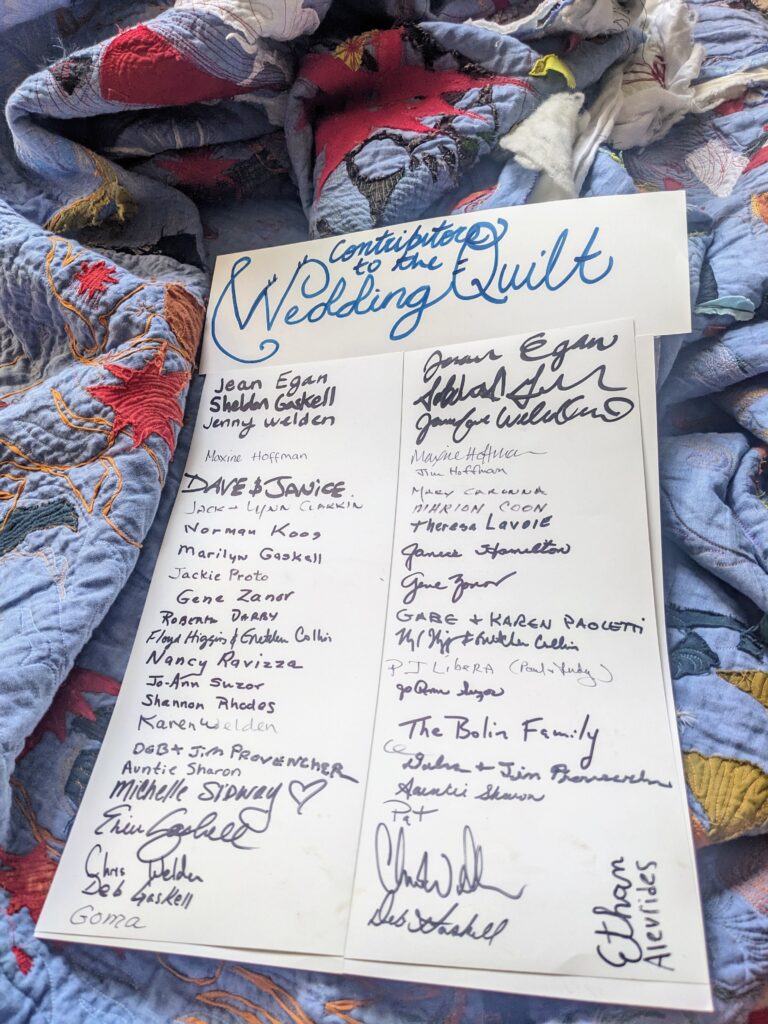 Contributors
to the
Wedding Quilt
Jean Egan
Sheldon Gaskell
Jenny Welden
Maxine Hoffman
DAVE & JANICE
JACK + LYNN CLARKIN
Norman Koos
Marilyn Gaskell
Jackie Proto
Gene Zanor
Roberta DARBY
Floyd Higgins & Gretchen Collin
Nancy Ravizza
Jo-Ann Suzor
Shannon Rhodes
Karen Welden
DEB + JIM PROVENCHER
Auntie Sharon
Michelle SIDWAY ♡
Erin Gaskell
Chris Welden
Deb Gaskell
Goma
Jean Egan
Maxine Hoffman
Jim Hoffman
MARY CARONNA
MARION COON
Theresa LAVOIE
Janice Hamilton
Gene Zanor
GABE + KAREN PAOLETTI
& Gretchen Collin
PJ LIBERA (Paul + Judy)
JoAnn Suzor
The Bolin Family
Debra + Jim Provencher
Auntie Sharon
Pat
Deb Gaskell
Ethan
Alevrides